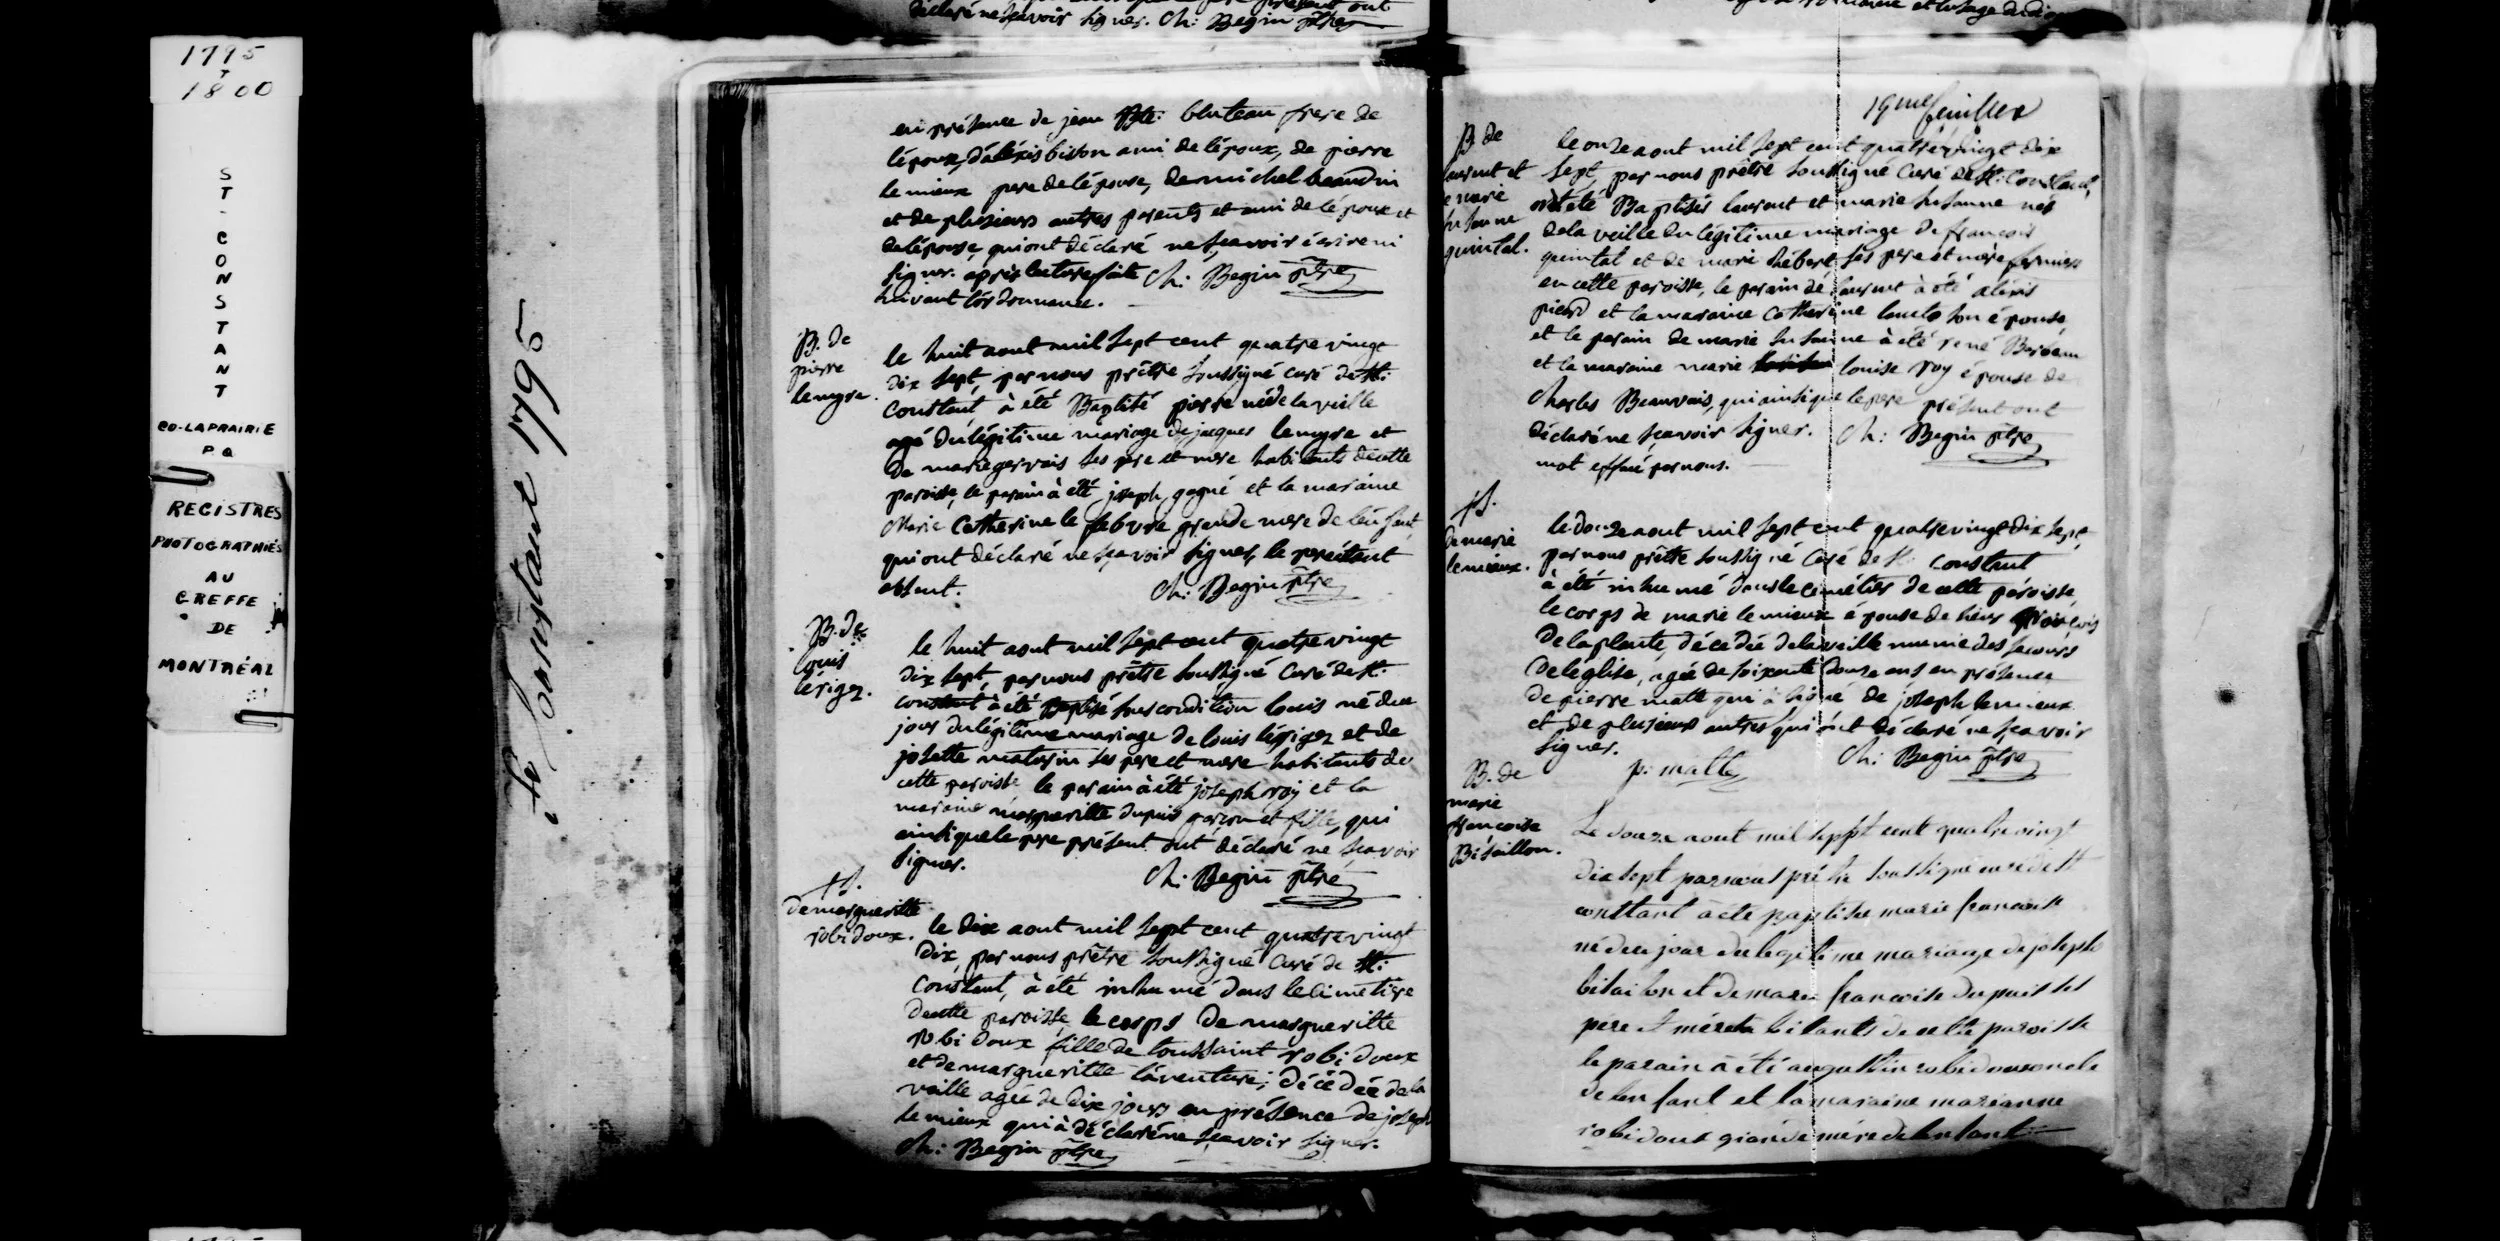 déclaré ne sçavoir signer. Ch: Begin ptre
1795
+
1800
ST-CONSTANT
CO-LAPRAIRIE
P Q
REGISTRES
PHOTOGRAPHIÉS
AU
GREFFE
DE
MONTRÉAL
St Constant 1795
en présence de jean Bte: bluteau frere de
lépoux, d'aléxis bison ami de lépoux, de pierre
lemieux pere de lépouse, de michel beaudin
et de plusieurs autres parents et ami de lépoux et
delépouse, qui ont déclaré ne sçavoir écrire ni
signer. après lecture faite Ch: Begin ptre
suivant lordonnance.
B. de
pierre
lemyre.
le huit aout mil sept cent quatre vingt
dix sept, par nous prêtre soussigné curé de St:
Constant à été Baptisé pierre né de la veille
agé du légitime mariage de jacques lemyre et
de marie gervais ses pere et mere habitants de cette
paroisse, le parain à été joseph gagné et la maraine
Marie Catherine le febvre grande mere de lenfant,
qui ont déclaré ne sçavoir signer, le pere étant
absent. Ch: Begin ptre
B. de
louis
lériger.
le huit aout mil sept cent quatre vingt
dix sept, par nous prêtre soussigné Curé de St:
constant à été Baptisé sous condition louis né du
jour du légitime mariage de louis lériger et de
josette maturin ses pere et mere habitants de
cette paroisse le parain à été joseph roy et la
maraine margueritte dupuis garson et fille, qui
ainsi que le pere présent ont déclaré ne sçavoir
signer. Ch: Begin ptre
S.
de margueritte
robidoux.
le dix aout mil sept cent quatre vingt
dix, par nous prêtre soussigné Curé de St:
Constant, à été inhumé dans le cimetiere
de cette paroisse, le corps de marguerite
robidoux fille de toussaint robidoux
et de marguerite laventure; décédée de la
veille agée de dix jours en présence de joseph
lemieux qui à déclaré ne sçavoir signer.
Ch: Begin ptre
19me feuillet
B. de
laurent et
marie
susanne
quintal.
le onze aout mil sept cent quatre vingt dix
sept, par nous prêtre soussigné Curé de St: Constant,
ont été Baptisés laurent et marie susanne nés
dela veille du légitime mariage de françois
quintal et de marie hébert ses pere et mere fermiers
en cette paroisse, le parain de laurent à été aléxis
picard et la maraine Catherine son épouse,
et le parain de marie susanne à été rené Barbeau
et la maraine marie louise roy épouse de
Charles Beauvais, qui ainsi que le pere présent ont
déclaré ne sçavoir signer. Ch: Begin ptre
mot effacé par nous.
S.
de marie
lemieux.
le douze aout mil sept cent quatre vingt dix sept,
par nous prêtre soussigné Curé de St: Constant
à été inhumé dans le cimetier de cette paroisse
le corps de marie lemieux épouse de françois
de la plante, décédée dela veille munie des secours
de léglise, agée de soixante douze ans en présence
de pierre matte qui à signé de joseph lemieux
et de plusieurs autres qui ont déclaré ne sçavoir
signer.
p: matte Ch: Begin ptre
B. de
marie
françoise
Bisaillon.
Le douze aout mil sept cent quatre vingt
dix sept par nous prêtre soussigné curé de St
constant a été baptisée marie francoise
né du jour du legitime mariage de joseph
bisaillon et de marie francoise dupuis ses
pere et mère habitants de cette paroisse
le parain a été augustin robidoux oncle
de lenfant et la maraine marianne
robidoux grande mére de lenfant